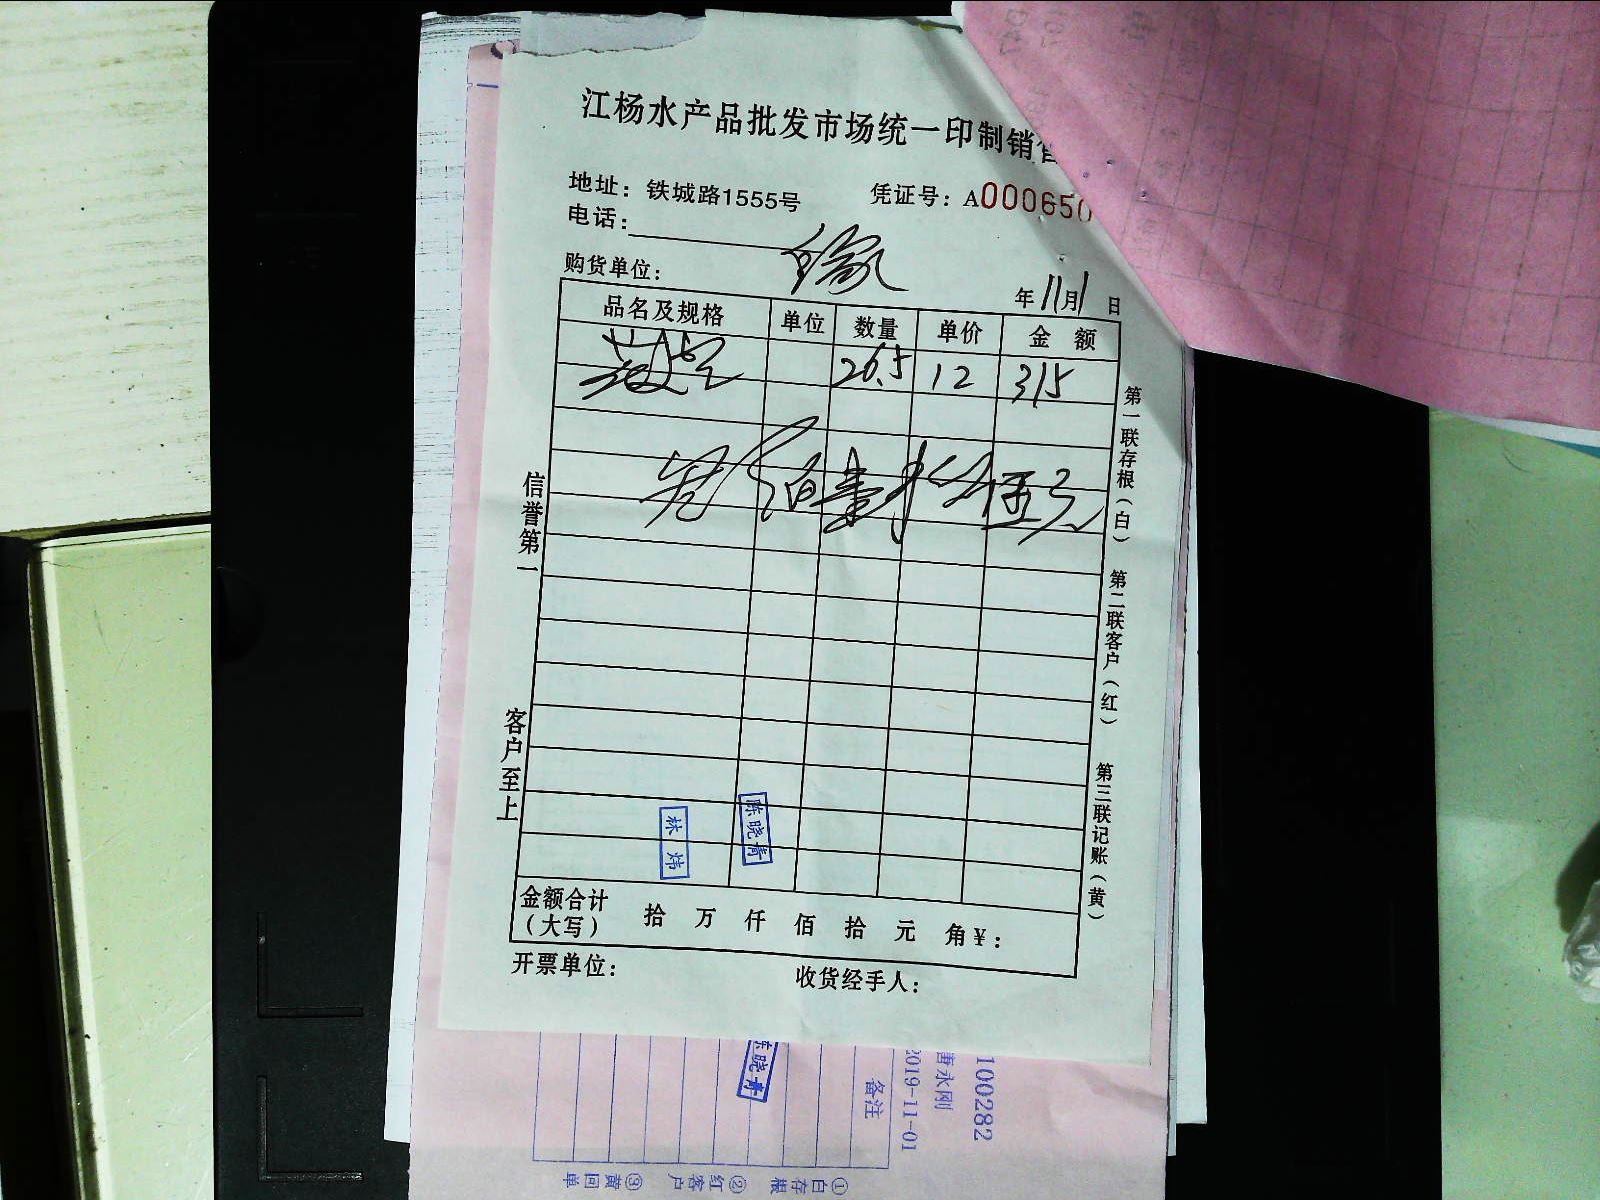 江杨水产品批发市场统一印制销售
地址：铁城路1555号 凭证号：A000650
电话：
购货单位： 年11月1日
品名及规格 单位 数量 单价 金额
26.5 12 315
佰壹拾伍元
信誉第一
客户至上
第一联存根（白）
第二联客户（红）
第三联记账（黄）
林炜
陈晓青
金额合计（大写） 拾 万 仟 佰 拾 元 角 ¥：
开票单位： 收货经手人：
陈晓青
100282
唐永刚
2019-11-01
备注
①白存根 ②红客户 ③黄回单